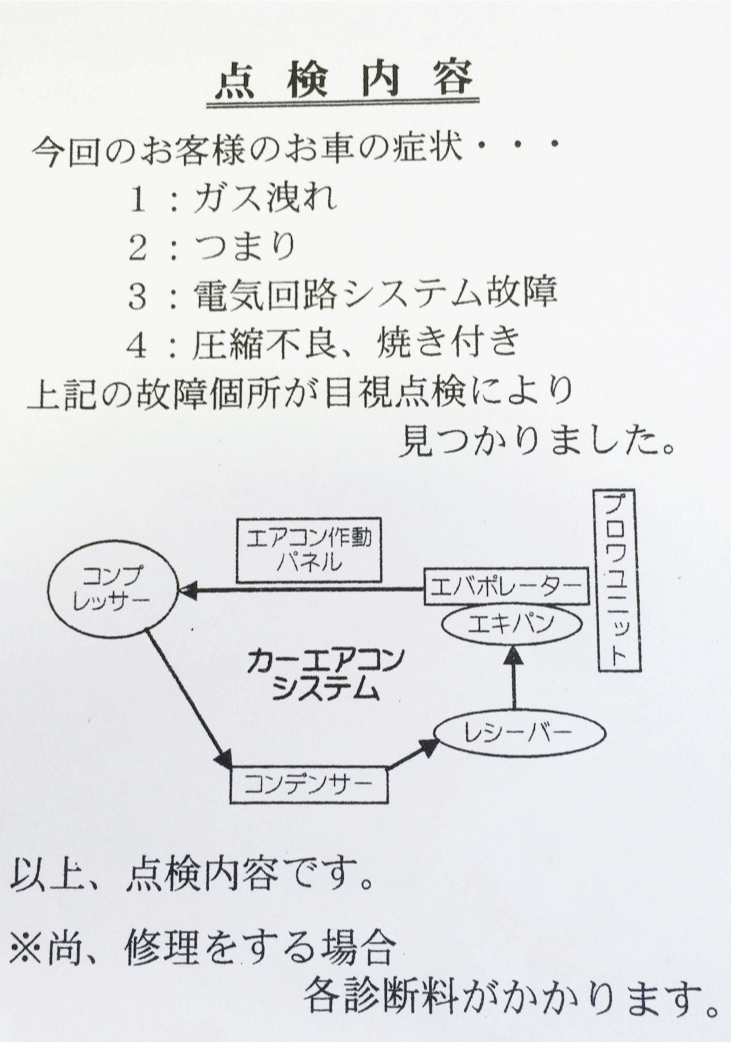 点検内容
今回のお客様のお車の症状・・・
1：ガス洩れ
2：つまり
3：電気回路システム故障
4：圧縮不良、焼き付き
上記の故障個所が目視点検により
見つかりました。
エアコン作動
パネル
コンプ
レッサー
エバポレーター
エキパン
ブロワユニット
カーエアコン
システム
レシーバー
コンデンサー
以上、点検内容です。
※尚、修理をする場合
各診断料がかかります。